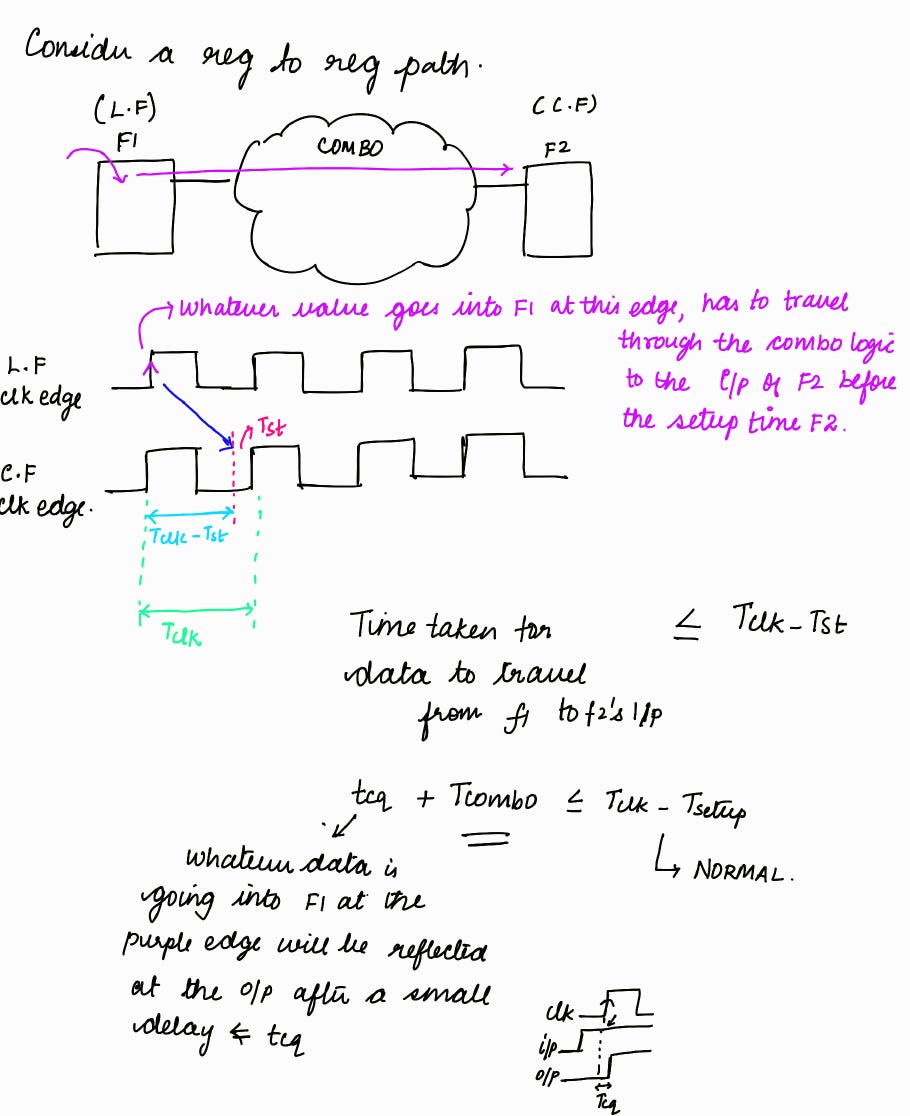 Consider a reg to reg path.
(L.F)
F1
COMBO
(C.F)
F2
Whatever value goes into F1 at this edge, has to travel
through the combo logic
to the i/p of F2 before
the setup time F2.
L.F
clk edge
Tst
C.F
clk edge.
Tclk - Tst
Tclk
Time taken for ≤ Tclk - Tst
data to travel
from f1 to f2's i/p
tcq + Tcombo ≤ Tclk - Tsetup
NORMAL.
whatever data is
going into F1 at the
purple edge will be reflected
at the o/p after a small
delay ⇐ tcq
clk
i/p
o/p
Tcq